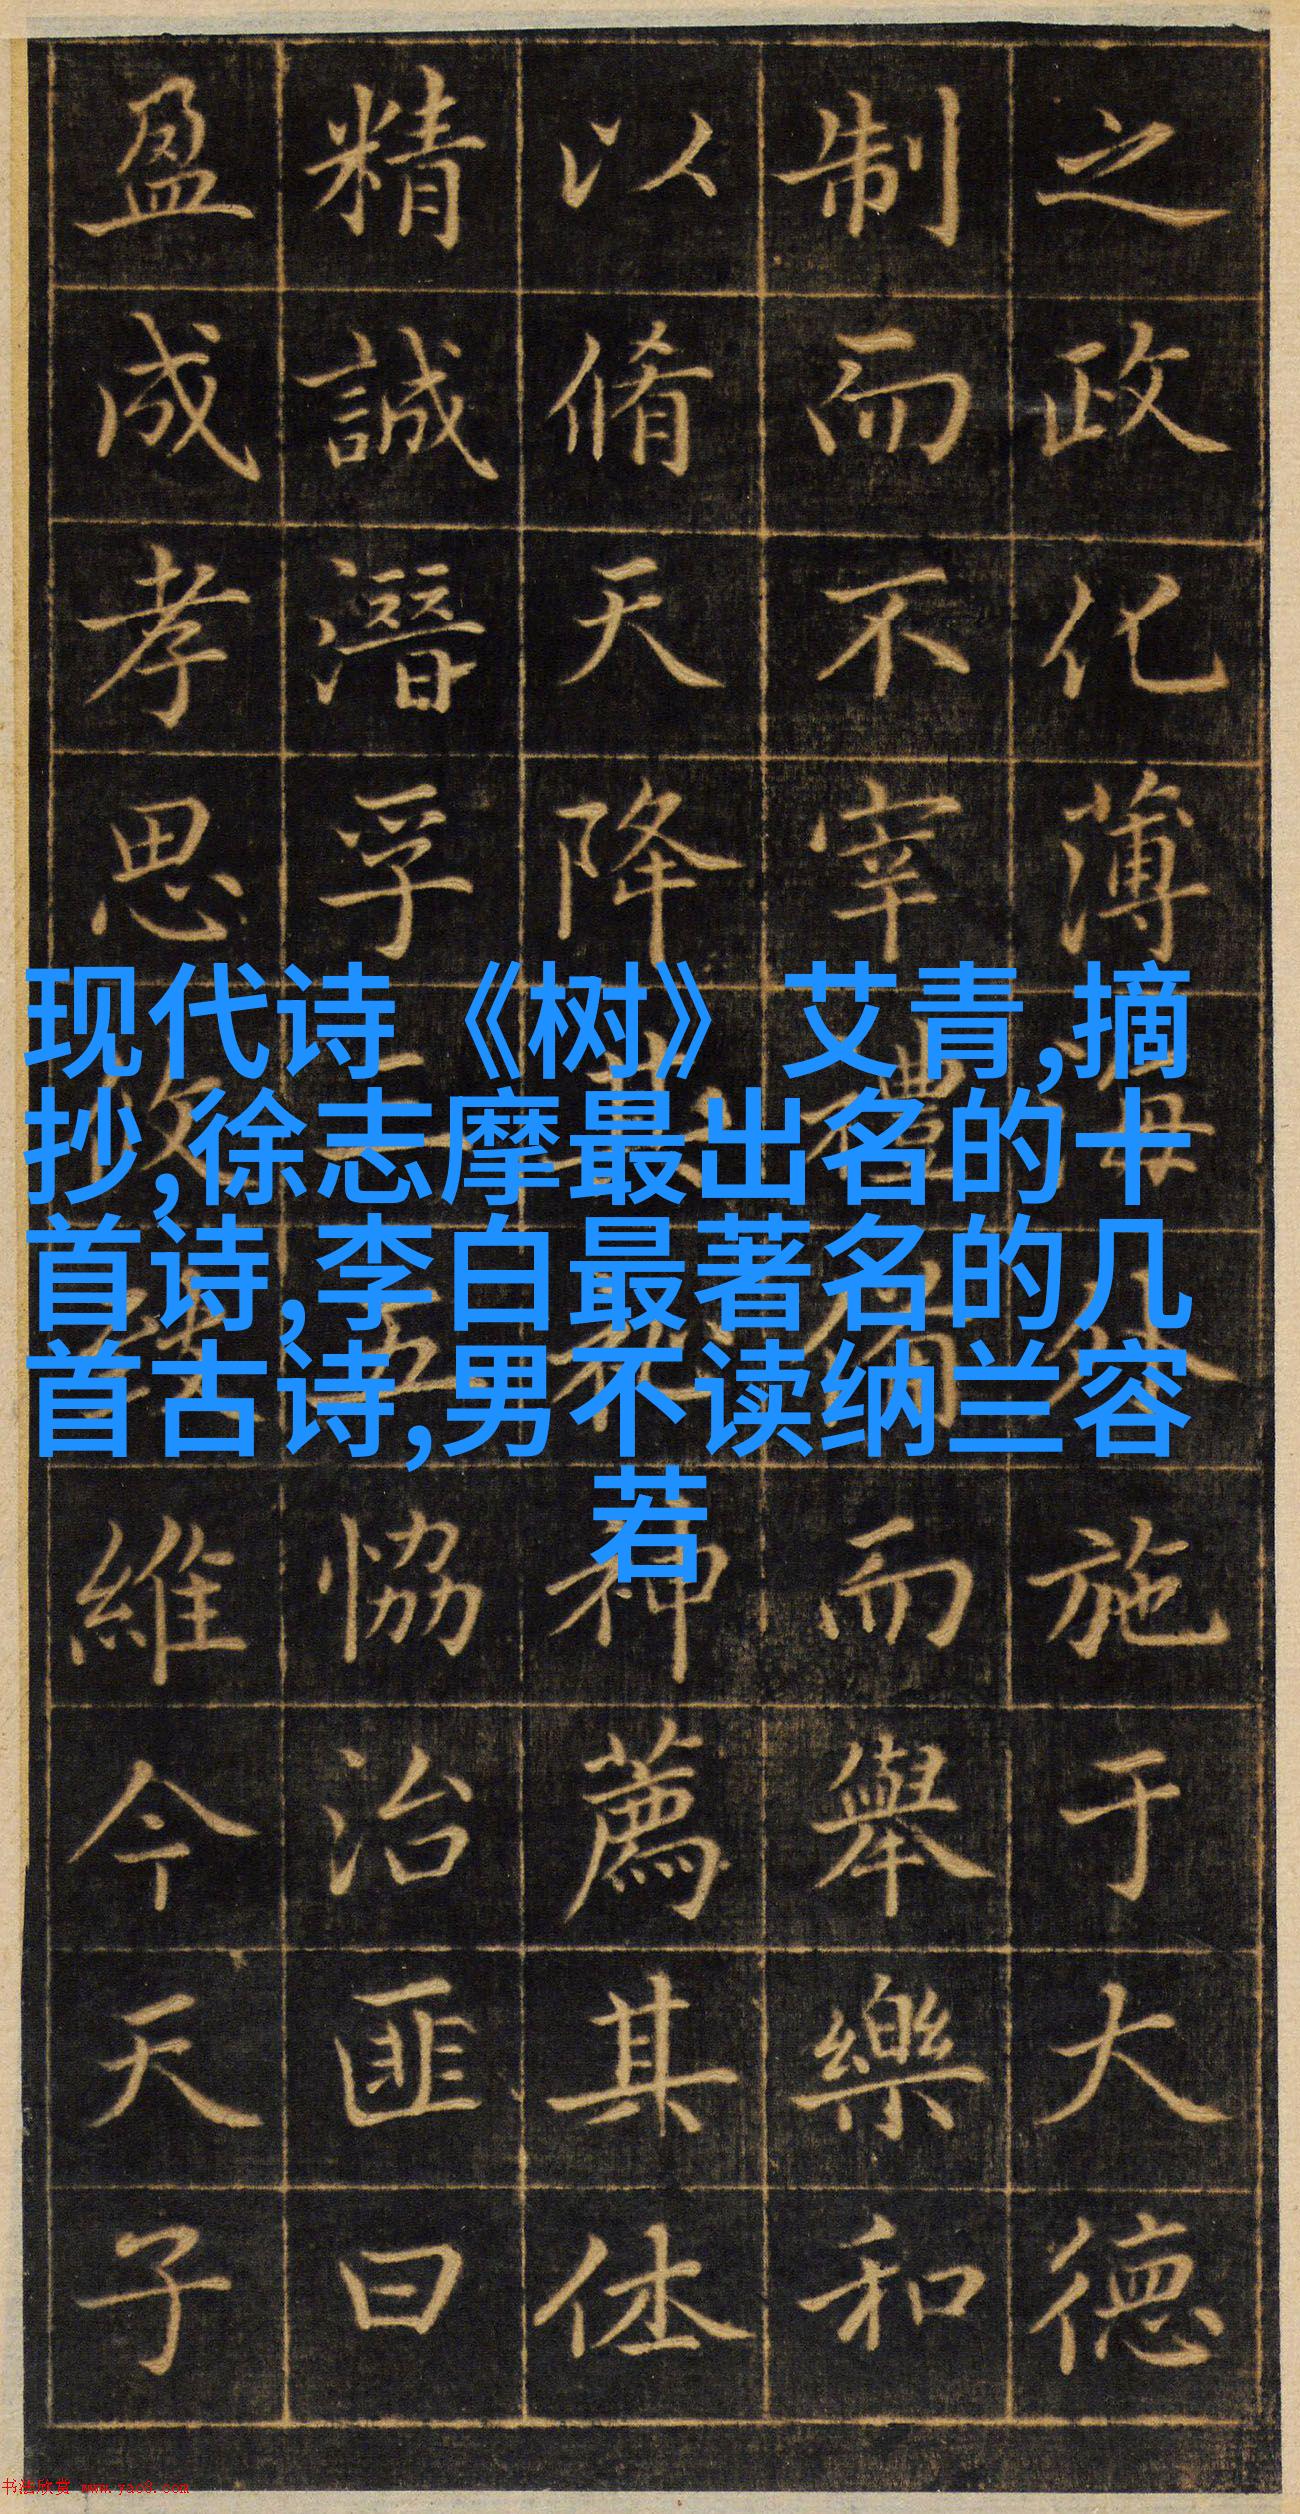 之政化薄海外施于大德
制而不宰禮備而舉樂和
以脩天降其神薦其休
精誠潛孚三五恊治匪曰
盈成孝思維今天子
现代诗《树》艾青,摘
抄,徐志摩最出名的十
首诗,李白最著名的几
首古诗,男不读纳兰容
若
书法欣赏 www.yac8.com